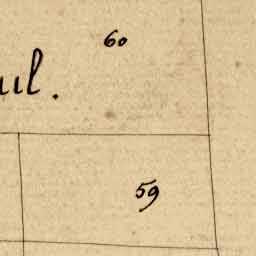 60
ul.
59